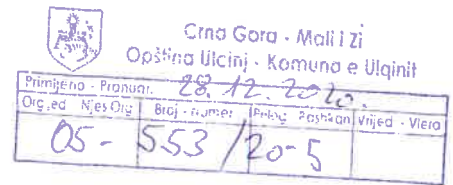 Crna Gora - Mali i Zi
Opština Ulcinj - Komuna e Ulqinit
Primljeno - Pranuar. 28.12.2020.
Org.ed Njes Org Broj - numer Prilog Pashkan Vrijed - Vlera
05- 553/20-5